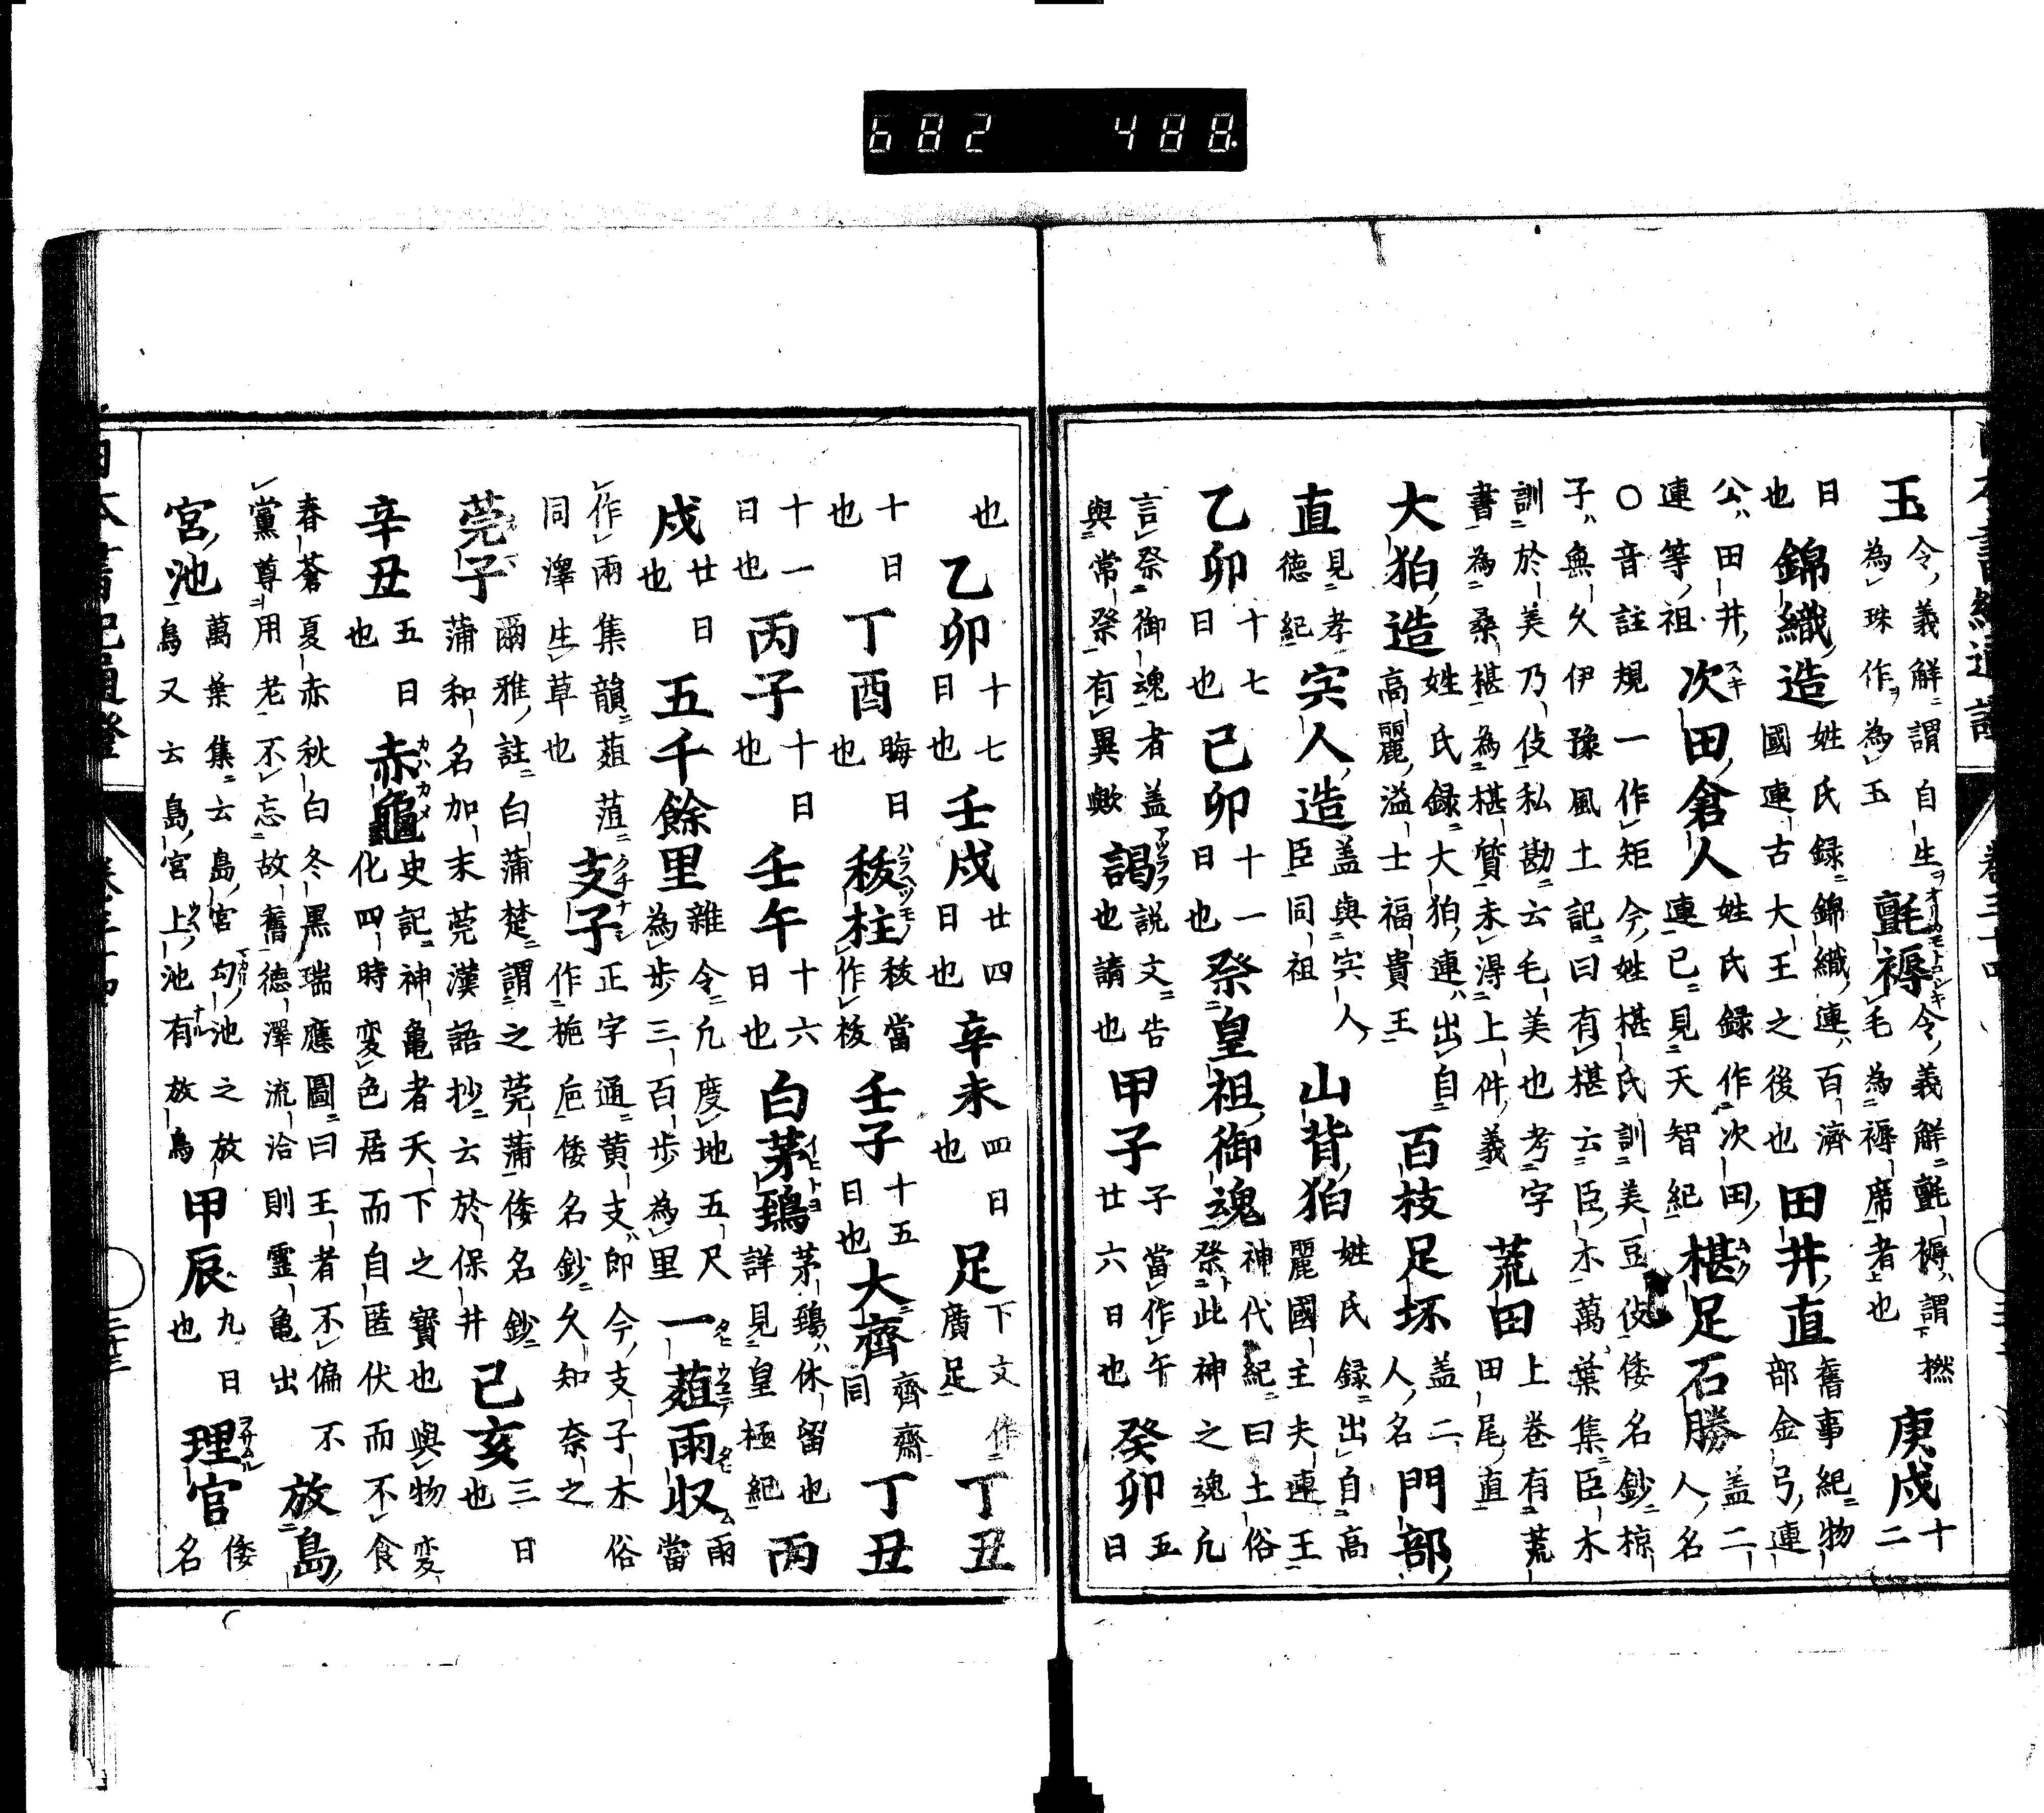 682 488.
玉 令義解謂自生為珠作為玉 氈褥 令義解氈褥謂撚毛為褥席者也 庚戌 十二
日也 錦織造 姓氏録錦織連百濟國連古大王之後也 田井直 舊事紀物部金弓連
公ハ田井連等祖 次田倉人 姓氏録作次田連已見天智紀 椹足石勝 蓋二人名
○音註規一作矩今姓椹氏訓美豆倭名鈔椋
子ハ無久伊豫風土記曰有椹云臣木萬葉集臣木
訓於美乃伎私勘云毛美也考字上巻有荒
書為桑椹為椹質未得上件義 荒田 田尾直
大狛造 姓氏録大狛連ハ出自高麗溢士福貴王 百枝足坏 蓋二人名 門部
直 見孝徳紀 宍人造 蓋與宍人臣同祖 山背狛 姓氏録出自高麗國主夫連王
乙卯 十七日也 己卯 十一日也 祭皇祖御魂 神代紀曰土俗祭此神之魂凡
言祭御魂者蓋與常祭有異歟 謁 説文告也請也 甲子 子當作午廿六日也 癸卯 五日
也 乙卯 十七日也 壬戌 廿四日也 辛未 四日也 足 下文作廣足 丁丑
十日也 丁酉 晦日也 秡柱 秡當作祓 壬子 十五日也 大齊 齊齋同 丁丑
十一日也 丙子 十日也 壬午 十六日也 白茅鵄 茅鵄ハ休留也詳見皇極紀 丙
戌 廿日也 五千餘里 雜令凡度地五尺為歩三百歩為里 一蒩雨収 雨當
作雨集韻蒩菹同澤生草也 支子 正字通黄支即今支子木俗作梔巵倭名鈔久知奈之
莞子 爾雅註白蒲楚謂之莞蒲倭名鈔蒲和名加末莞漢語抄云於保井 己亥 三日也
辛丑 五日也 赤龜 史記神亀者天下之寳也與物変化四時変色居而自匿伏而不食
春蒼夏赤秋白冬黒瑞應圖曰王者不偏不黨尊用老不忘故舊德澤流洽則霊亀出 放島
宮池 萬葉集云島宮勾池之放鳥又云島宮上池有放鳥 甲辰 九日也 理官 倭名